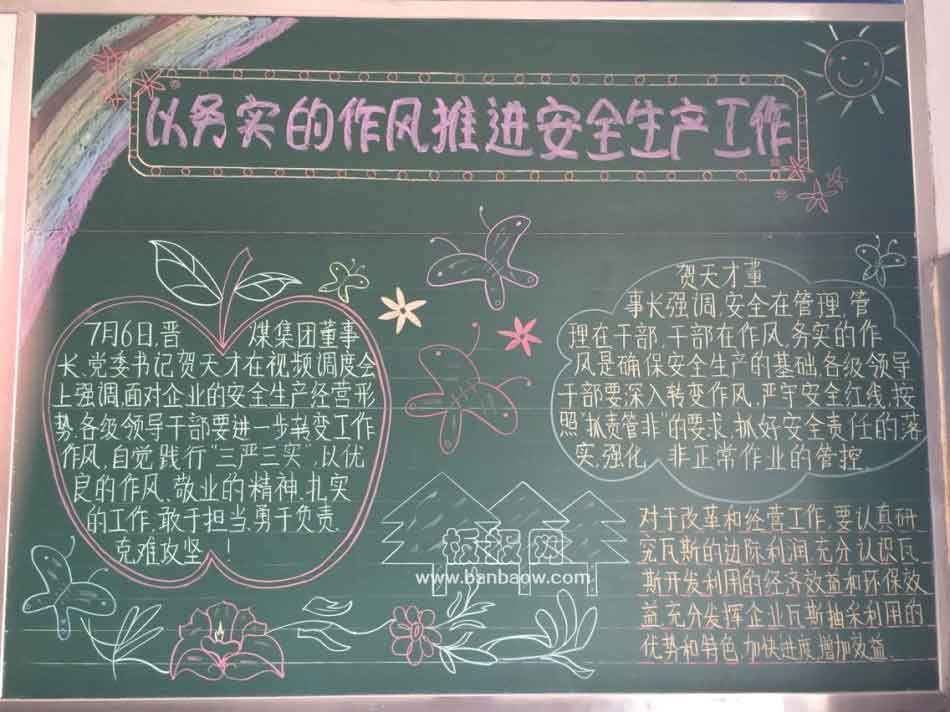 以务实的作风推进安全生产工作
7月6日,晋 煤集团董事
长,党委书记贺天才在视频调度会
上强调,面对企业的安全生产经营形
势,各级领导干部要进一步转变工作
作风,自觉践行"三严三实",以优
良的作风,敬业的精神,扎实
的工作,敢于担当,勇于负责,
克难攻坚!
贺天才董
事长强调,安全在管理,管
理在干部,干部在作风,务实的作
风是确保安全生产的基础,各级领导
干部要深入转变作风,严守安全红线,按
照"抓责管非"的要求,抓好安全责任的落
实,强化 非正常作业的管控.
对于改革和经营工作,要认真研
究瓦斯的边际利润,充分认识瓦
斯开发利用的经济效益和环保效
益,充分发挥企业瓦斯抽采利用的
优势和特色,加快进度,增加效益.
板报网
www.banbaow.com